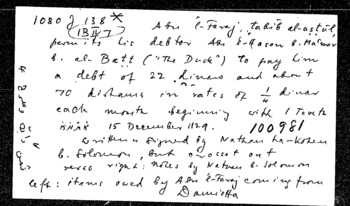 1080 J 138
(IB II 7)
Abu 'l-Faraj, tabib al-ustul,
permits his debtor Abu 'l-Hasan b. Mal'mar
b. al-Batt ("The Duck") to pay him
a debt of 22 dinars and about
70 dirhams in rates of 1/4 dinar
each month beginning with 1 Tevet
15 December 1129. 100981
written & signed by Nathan ha-Kohen
b. Solomon, but crossed out
verso right: notes by Nathan b. Solomon
left: items owed by Abu 'l-Faraj coming from
Damietta